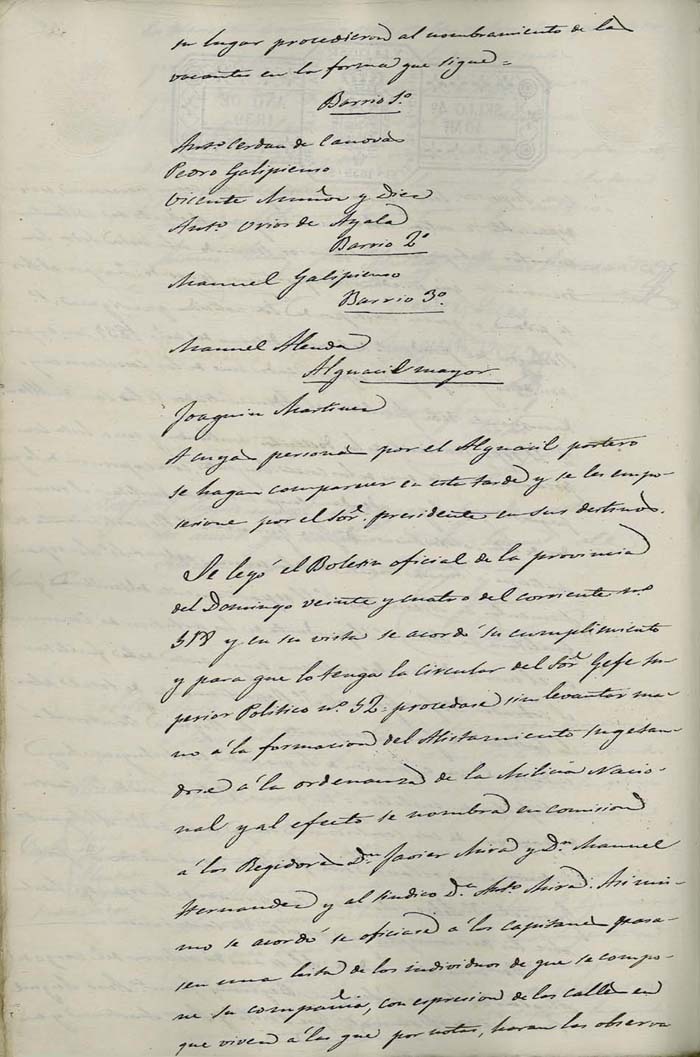 su lugar procedieron al nombramiento de la
vacantes en la forma que sigue=
Barrio 1º
Antº Cerdan de Canovas
Pedro Galipienso
Vicente Muñoz y Diez
Antº Urios de Ayala
Barrio 2º
Manuel Galipienso
Barrio 3º
Manuel Alenda
Alguacil mayor
Joaquin Martinez
A cuyas personas por el Alguacil portero
se hagan comparecer en esta tarde y se les empo-
sesione por el Sor. presidente en sus destinos.
Se leyó el Boletin oficial de la provincia
del Domingo veinte y cuatro del corriente nº
y en su vista se acordó su cumplimiento
y para que lo tenga la circular del Sor. Gefe Su
perior Politico nº 52: procedase sin levantar ma-
no á la formacion del Alistamiento sugetan-
dose á la ordenanza de la Milicia Nacio-
nal y al efecto se nombra en comision
á los Regidores Dn. Javier Mira y Dn. Manuel
Hernandez y al Sindico Dn. Antº Mira. Asimis-
mo se acordó se oficiase á los capitanes pasa-
sen una lista de los individuos de que se compo-
ne su compañia, con espresion de las calles en
que viven á las que por notas, haran las observa